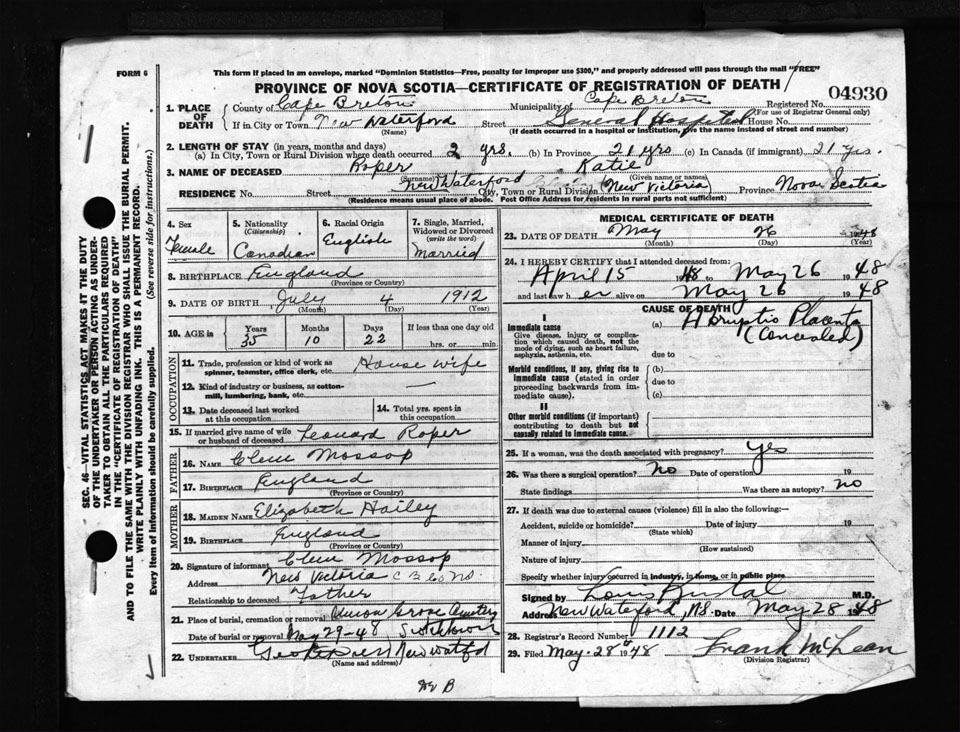 FORM 6
This form if placed in an envelope, marked "Dominion Statistics—Free, penalty for improper use $300," and properly addressed will pass through the mail "FREE"
PROVINCE OF NOVA SCOTIA—CERTIFICATE OF REGISTRATION OF DEATH
04930
1. PLACE OF DEATH County of Cape Breton Municipality of Cape Breton Registered No. (For use of Registrar General only)
If in City or Town New Waterford (Name) Street General Hospital House No.
(If death occurred in a hospital or institution, give the name instead of street and number)
2. LENGTH OF STAY (in years, months and days)
(a) In City, Town or Rural Division where death occurred 2 yrs. (b) In Province 21 yrs (c) In Canada (if immigrant) 21 yrs.
3. NAME OF DECEASED Roper (Surname) Katie (Given name or names)
RESIDENCE No. Street New Waterford City, Town or Rural Division (New Victoria) Province Nova Scotia
(Residence means usual place of abode. Post Office Address for residents in rural parts not sufficient)
4. Sex Female
5. Nationality (Citizenship) Canadian
6. Racial Origin English
7. Single, Married, Widowed or Divorced (write the word) Married
8. BIRTHPLACE England (Province or Country)
9. DATE OF BIRTH July 4 1912
(Month) (Day) (Year)
10. AGE in Years 35 Months 10 Days 22 If less than one day old hrs. or min.
OCCUPATION
11. Trade, profession or kind of work as spinner, teamster, office clerk, etc. House wife
12. Kind of industry or business, as cotton-mill, lumbering, bank, etc. —
13. Date deceased last worked at this occupation
14. Total yrs. spent in this occupation
15. If married give name of wife or husband of deceased Leonard Roper
FATHER
16. NAME Clem Mossop
17. BIRTHPLACE England
(Province or Country)
MOTHER
18. MAIDEN NAME Elizabeth Hailey
19. BIRTHPLACE England
(Province or Country)
20. Signature of informant Clem Mossop
Address New Victoria C B Co NS.
Relationship to deceased Father
21. Place of burial, cremation or removal Grove
Date of burial or removal May 29-48
22. UNDERTAKER New
(Name and address)
MEDICAL CERTIFICATE OF DEATH
23. DATE OF DEATH May 26 1948
(Month) (Day) (Year)
24. I HEREBY CERTIFY that I attended deceased from:
April 15 48 to May 26 1948
and last saw her alive on May 26 1948
CAUSE OF DEATH
I
Immediate cause
Give disease, injury or complication which caused death, not the mode of dying, such as heart failure, asphyxia, asthenia, etc.
(a) Abruptio Placenta
(Concealed)
due to
Morbid conditions, if any, giving rise to immediate cause (stated in order proceeding backwards from immediate cause).
(b)
due to
(c)
II
Other morbid conditions (if important) contributing to death but not causally related to immediate cause.
25. If a woman, was the death associated with pregnancy? yes
26. Was there a surgical operation? No Date of operation 19
State findings Was there an autopsy? no
27. If death was due to external causes (violence) fill in also the following:—
Accident, suicide or homicide? Date of injury 19
(State which)
Manner of injury
(How sustained)
Nature of injury
Specify whether injury occurred in industry, in home, or in public place
Signed by Louis M.D.
Address New Waterford, NS. Date May 28 1948
28. Registrar's Record Number 1112
29. Filed May 28 1948 Frank McLean
(Division Registrar)
SEC. 46—VITAL STATISTICS ACT MAKES IT THE DUTY OF THE UNDERTAKER OR PERSON ACTING AS UNDERTAKER TO OBTAIN ALL THE PARTICULARS REQUIRED IN THE "CERTIFICATE OF REGISTRATION OF DEATH" AND TO FILE THE SAME WITH THE DIVISION REGISTRAR WHO SHALL ISSUE THE BURIAL PERMIT.
WRITE PLAINLY WITH UNFADING INK. THIS IS A PERMANENT RECORD.
Every item of information should be carefully supplied. (See reverse side for instructions.)